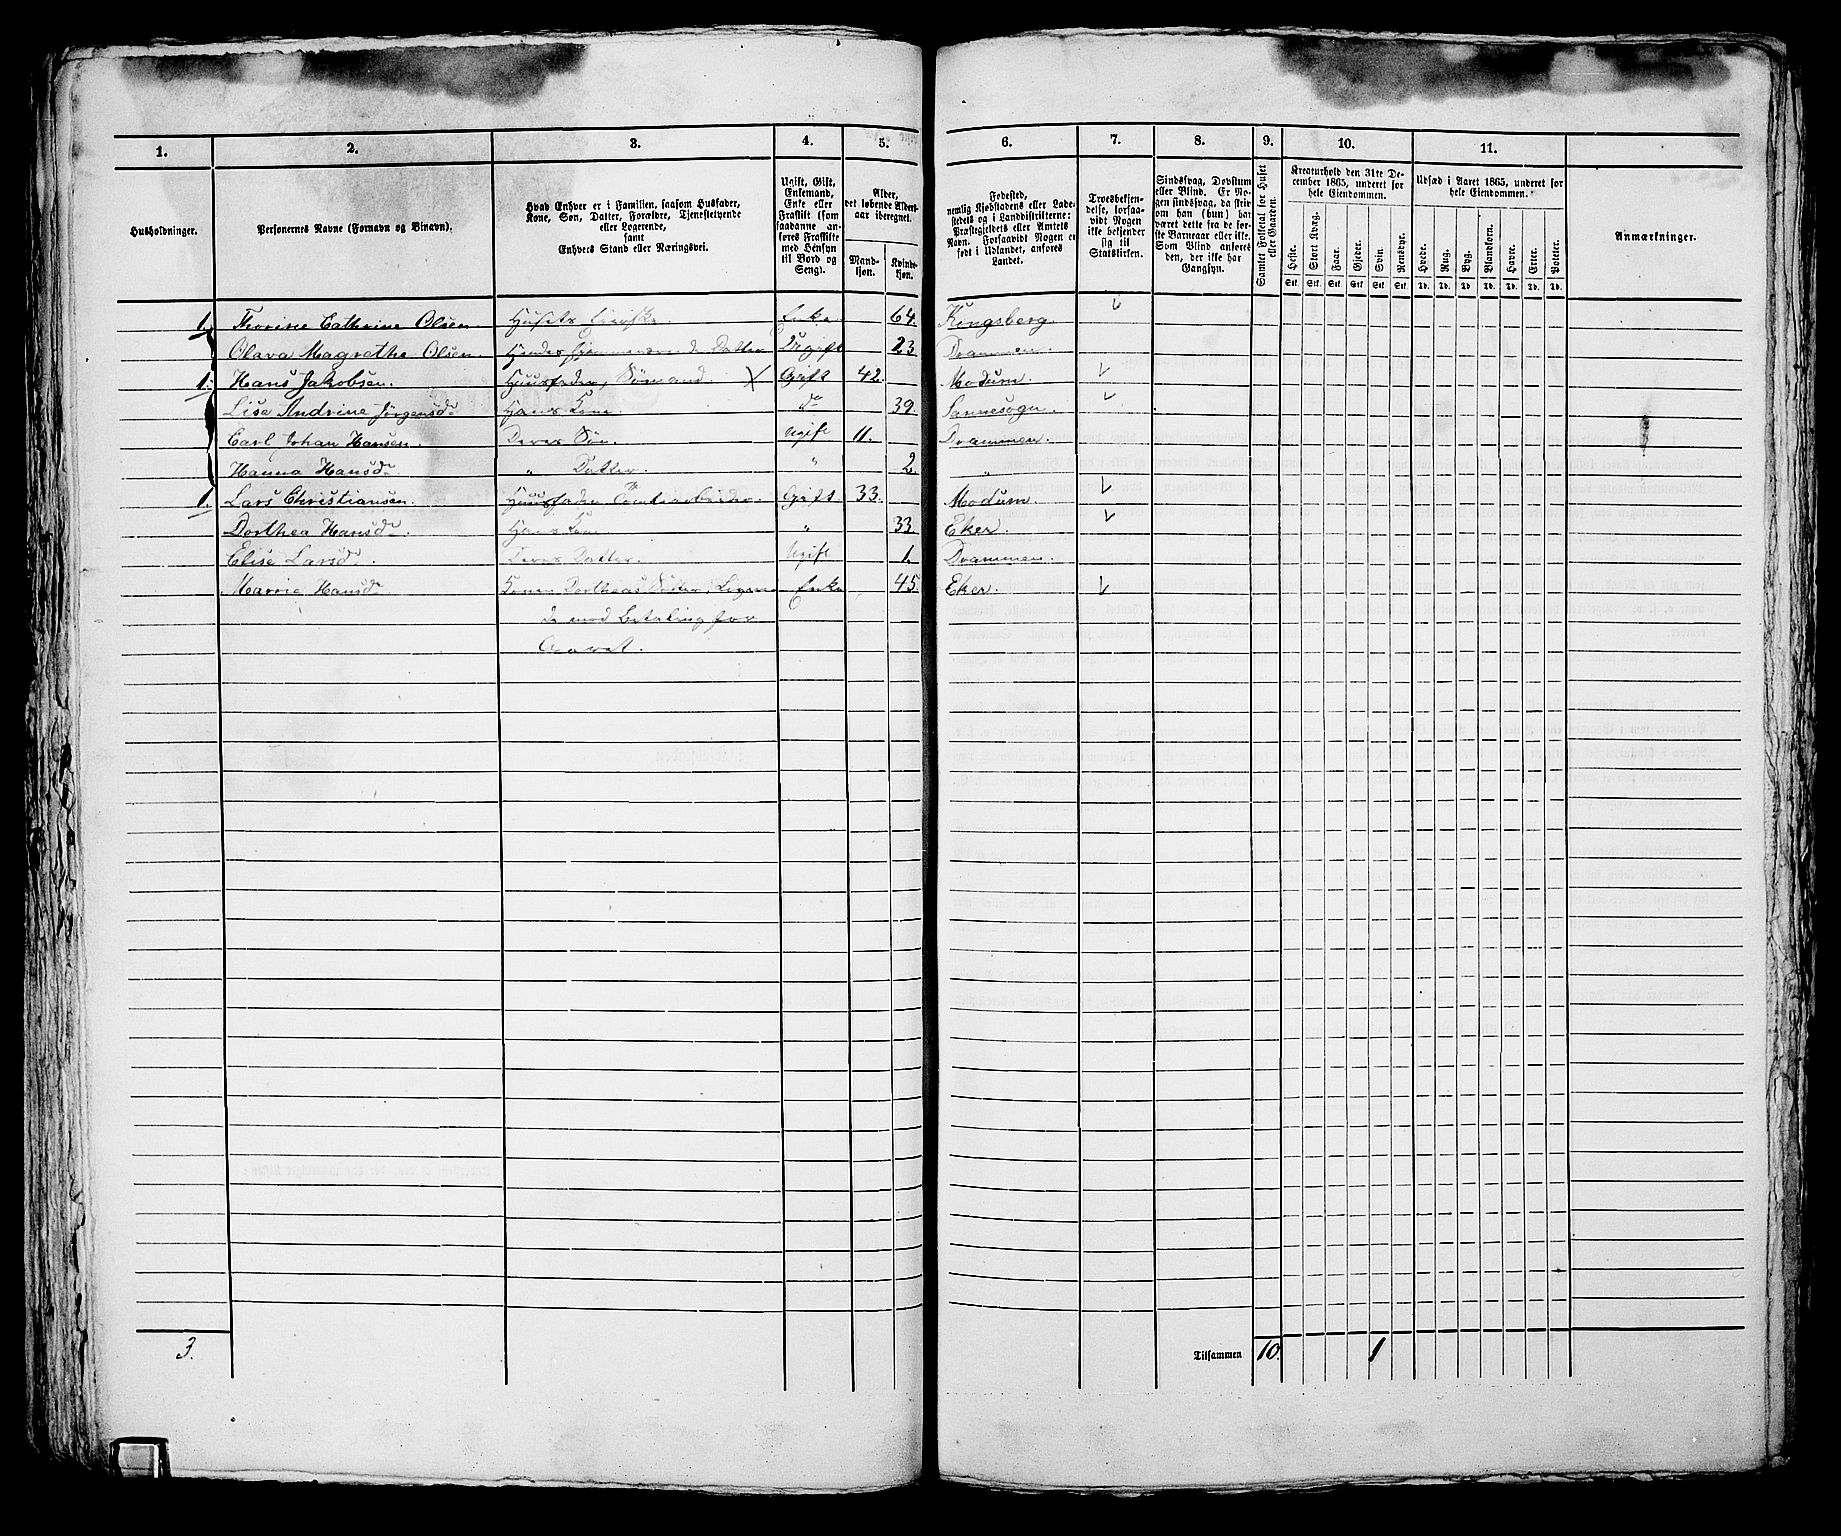 1. 2. 3. 4. 5. 6. 7. 8. 9. 10. 11.
Husholdninger.
Personernes Navne (Fornavn og Binavn).
Hvad Enhver er i Familien, saasom Husfader,
Kone, Søn, Datter, Forældre, Tjenestetyende
eller Logerende,
samt
Enhvers Stand eller Næringsvei.
Ugift, Gift,
Enkemand,
Enke eller
Fraskilt (som
saadanne an-
føres Fraskilte
med Hensyn
til Bord og
Seng).
Alder,
det løbende Alders-
aar iberegnet.
Mand-
kjøn.
Kvinde-
kjøn.
Fødested,
nemlig Kjøbstadens eller Lade-
stedets og i Landdistrikterne:
Præstegjeldets eller Amtets
Navn. Forsaavidt Nogen er
født i Udlandet, anføres
Landet.
Troesbekjen-
delse, forsaa-
vidt Nogen
ikke bekjender
sig til
Statskirken.
Sindssvag, Døvstum
eller Blind. Er No-
gen sindssvag, da skri-
des om han (hun) har
været dette fra de før-
ste Barneaar eller ikke.
Som Blind anføres
den, der ikke har
Gangsyn.
Samlet Folketal for Huset
eller Gaarden.
Kreaturhold den 31te De-
cember 1865, underet for
hele Eiendommen.
Heste. Stort Kvæg. Faar. Gjeder. Svin. Rensdyr.
Stk. Stk. Stk. Stk. Stk. Stk.
Udsæd i Aaret 1865, underet for
hele Eiendommen.
Hvede. Rug. Byg. Blandkorn. Havre. Erter. Poteter.
Td. Td. Td. Td. Td. Td. Td.
Anmærkninger.
1. Thorine Cathrine Olsen. Husets Eierske Enke 64. Kongsberg.
Olava Magrethe Olsen. Hendes hjemmeværende Datter Ugift 23. Drammen.
1. Hans Jakobsen. Huusfader, Sømand. X Gift 42. Modum.
Lise Andrine Jörgensd. Hans Kone. do 39. Sannesogn.
Carl Johan Hansen. Deres Søn. Ugift 11. Drammen.
Hanna Hansd. " Datter. " 2. "
1. Lars Christiansen. Huusfader, Tomtearbeider. Gift 33. Modum.
Dorthea Hansd. Hans Kone " 33. Eker.
Elise Larsd. Deres Datter. Ugift 1. Drammen.
Marrie Hansd. Konen Dortheas Søster, Logeren- Enke 45. Eker.
de mod Betaling for
Qvarret.
3. Tilsammen 10. 1